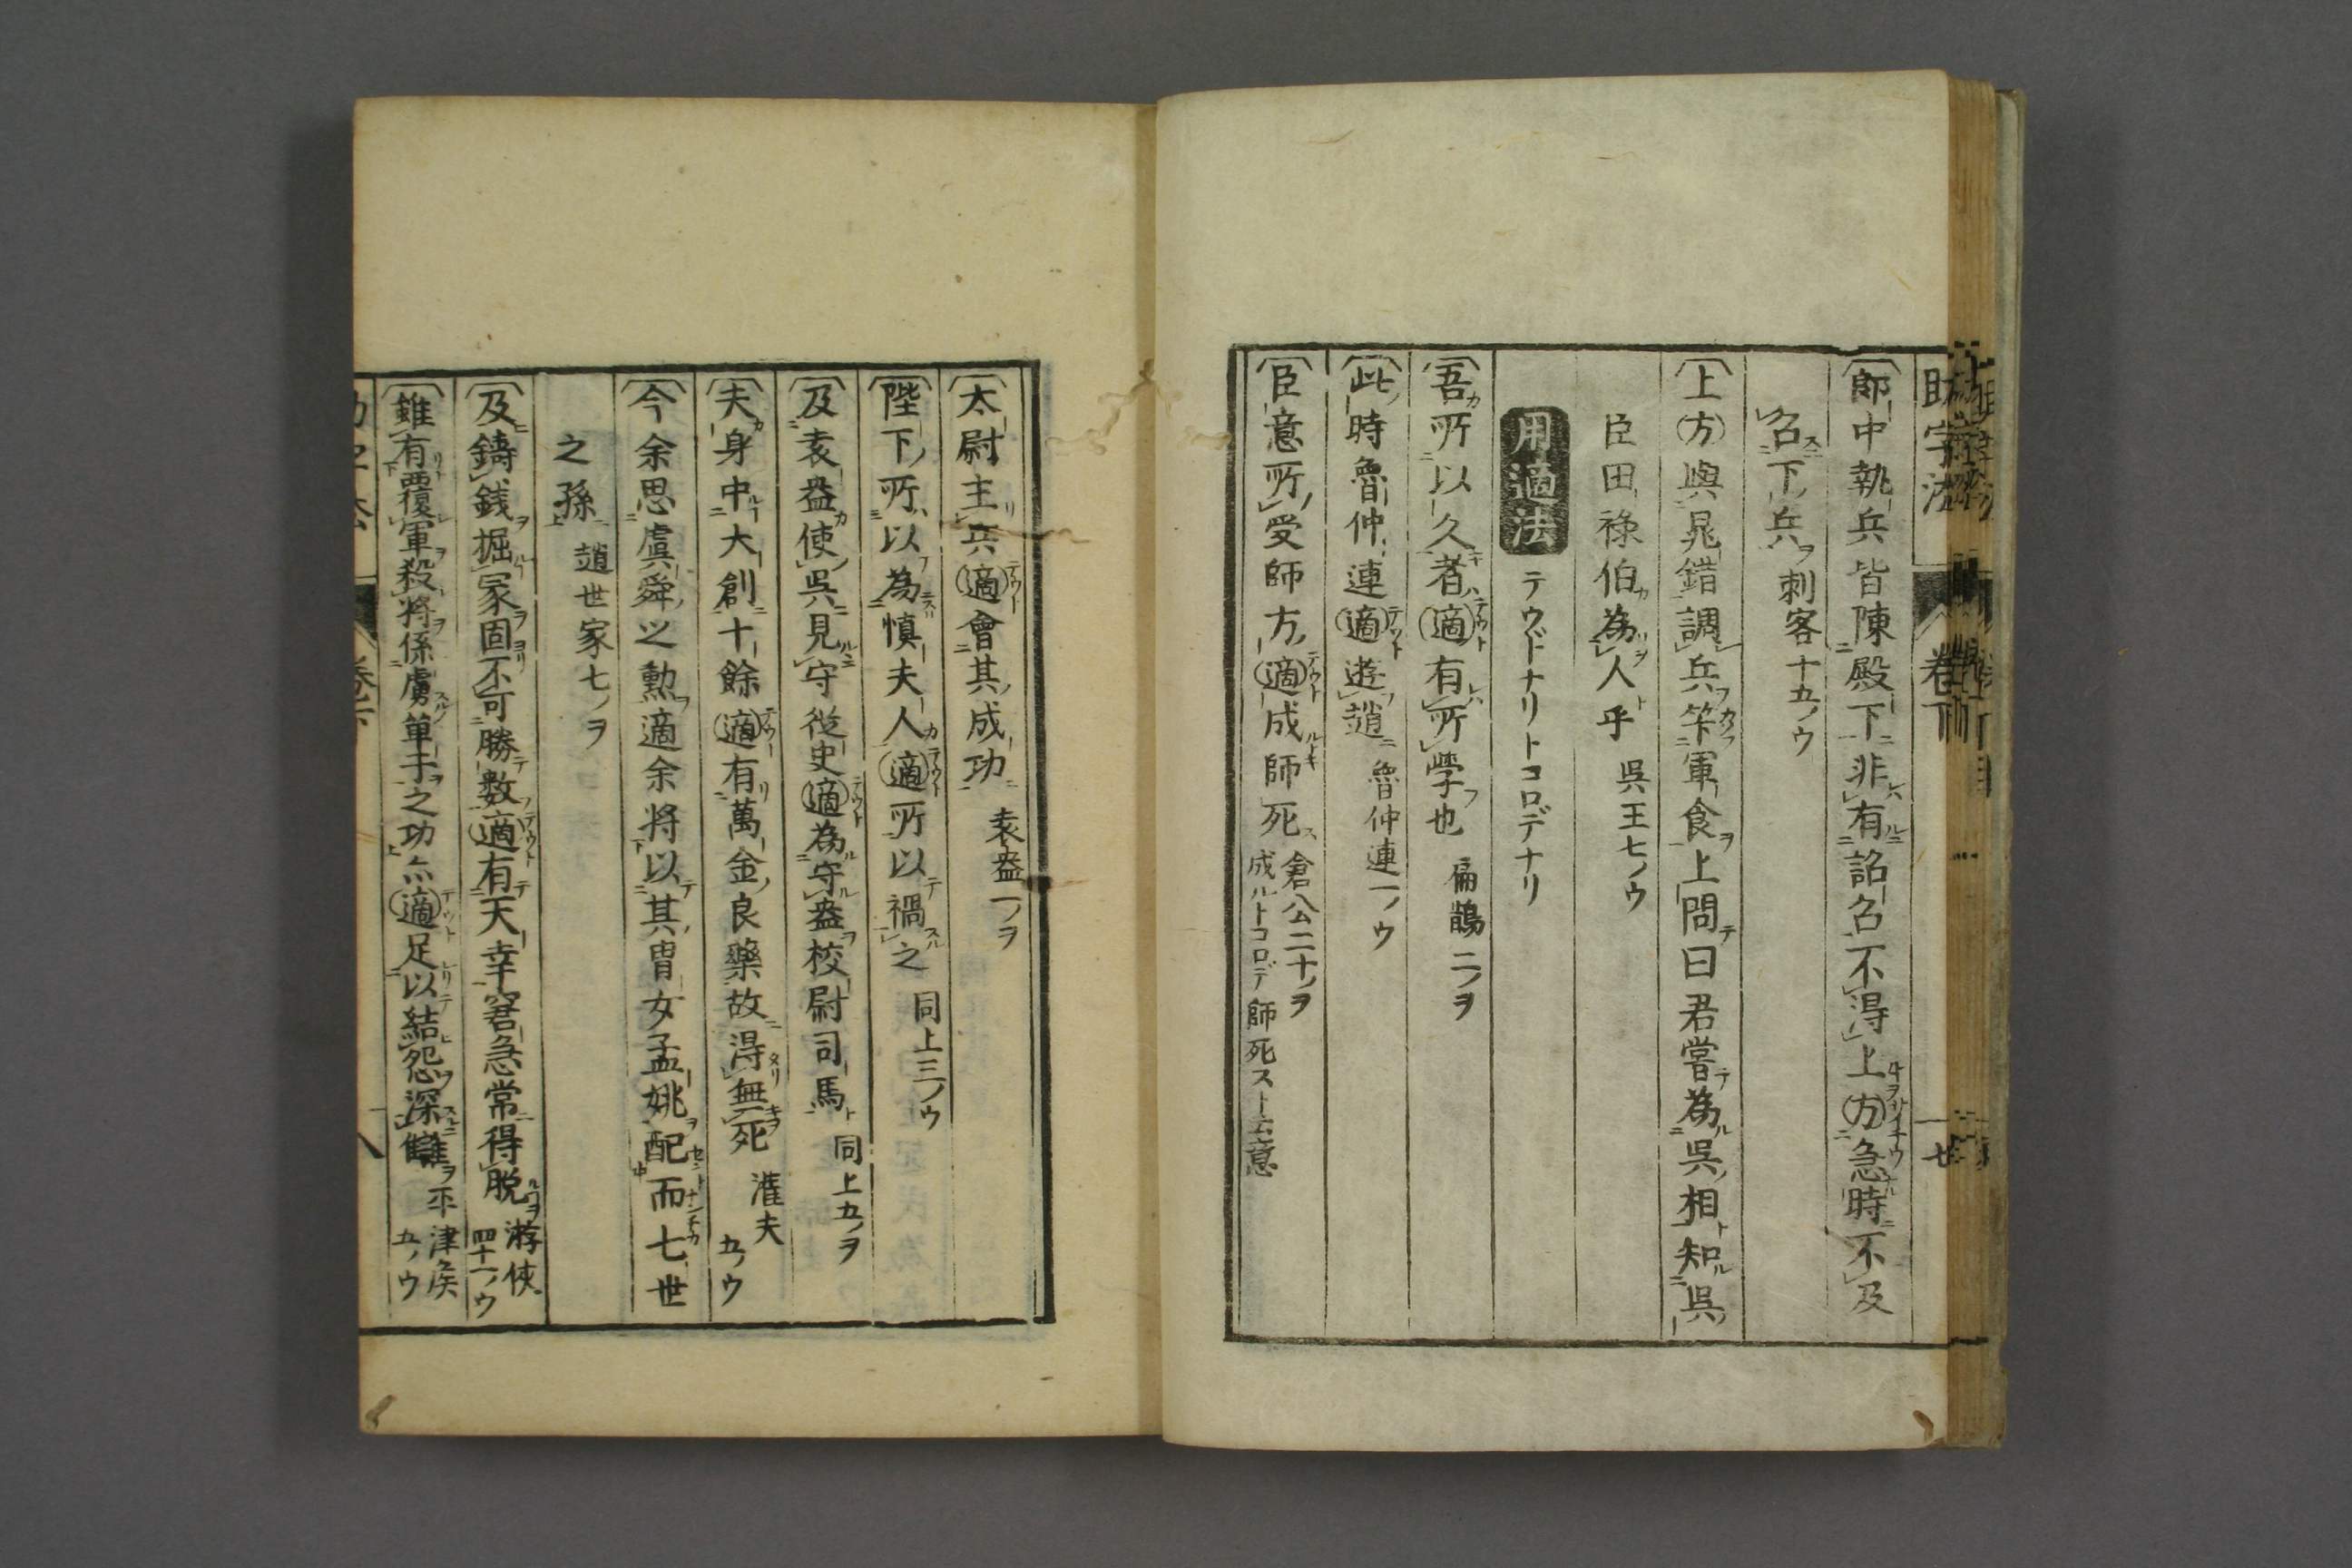 助字法 卷下
郎中執兵皆陳殿下非有詔召不得上方急時不及
召下兵 刺客十五ノウ
上方與晁錯調兵筭軍食上問曰君嘗為呉相知呉
臣田祿伯為人乎 呉王七ノウ
用適法 テウドナリトコロデナリ
吾所以久者適有所學也 扁鵲二ノヲ
此時魯仲連適遊趙 魯仲連一ノウ
臣意所受師方適成師死 倉公二十ノヲ
成ルトコロデ師死スト云意
太尉主兵適會其成功 袁盎一ノヲ
陛下所以為慎夫人適所以禍之 同上三ノウ
及袁盎使呉見守從史適為守盎校尉司馬 同上五ノヲ
夫身中大創十餘適有萬金良藥故得無死 灌夫五ノウ
今余思虞舜之勲適余将以其冑女孟姚配而七世
之孫 趙世家七ノヲ
及鑄銭掘冢固不可勝数適有天幸窘急常得脱 游侠四十一ノウ
雖有覆軍殺将係虜單于之功亦適足以結怨深讎 平津侯五ノウ